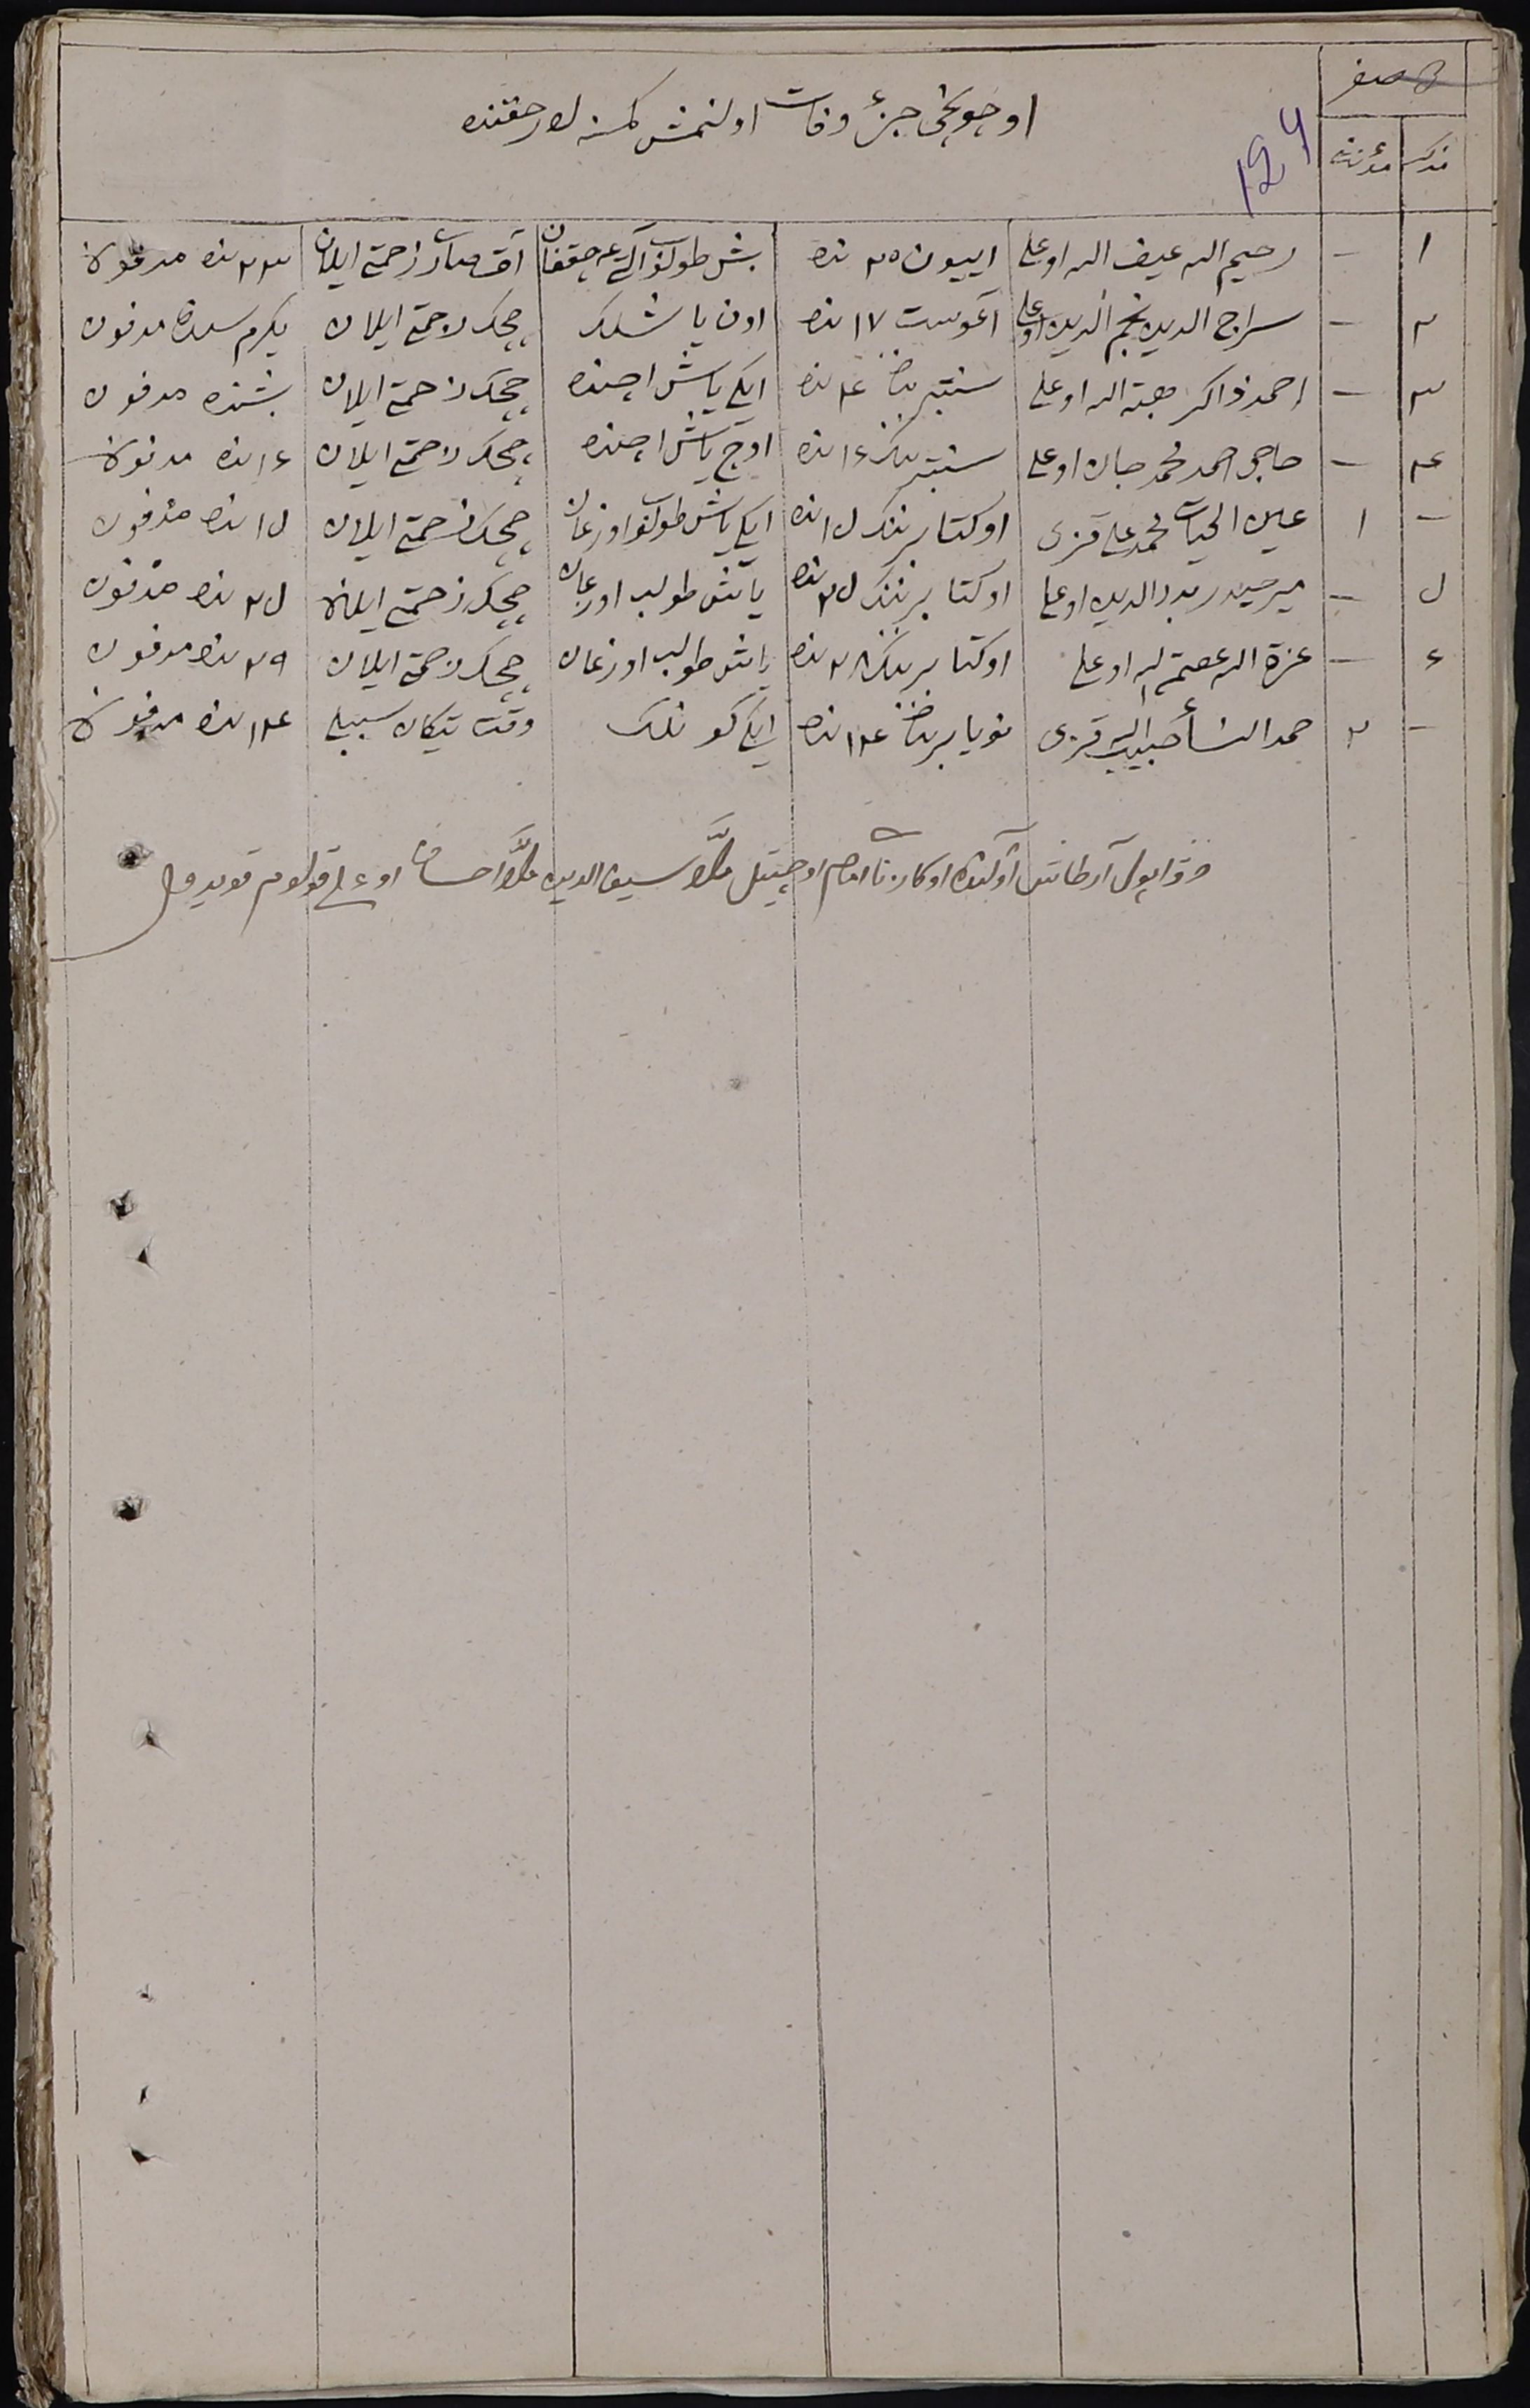 اوچونچی جزؤ وفات اولنمش کمسنه لر حقنده
127
صفر
مذکر مؤنث
۱ — رحیم الله عیف الله اوغلی ایيون ۲۵ نده بش طولوب آلتی غه چققان آق صتار زحمتی ایلان ۲۳ نده مدفون
۲ — سراج الدین نجم الدین اوغلی آغوست ۱۷ نده اون یاشلک چچک زحمتی ایلان یکرم سنده مدفون
۳ — احمد ذاکر هبة الله اوغلی سنتبرنڭ ۴ نده ایکی یاش اچنده چچک زحمتی ایلان بشنده مدفون
۴ — حاجی احمد محمد جان اوغلی سنتبرنڭ ۱۶ نده اوچ یاش اچنده چچک زحمتی ایلان ۱۶ نده مدفون
— ۱ عین الحیات محمد علی قزی اوکتابرننک ۱۵ نده ایکی یاش طولوب اوزغان چچک زحمتی ایلان ۱۵ نده مدفون
۵ — میر حیدر بدر الدین اوغلی اوکتابرننک ۲۵ نده یاش طولب اوزغان چچک زحمتی ایلان ۲۵ نده مدفون
۶ — عزة الله عصمة الله اوغلی اوکتابرننک ۲۸ نده یاش طولب اوزغان چچک زحمتی ایلان ۲۹ نده مدفون
— ۲ حمد النسأ حبیب الله قزی نویابرنڭ ۱۴ نده ایکی کونلک وقت یتکان سببلی ۱۴ نده مدفون
آرطاش امام ملّا سیف الدین ملّا اوغلی قولوم قویدوم